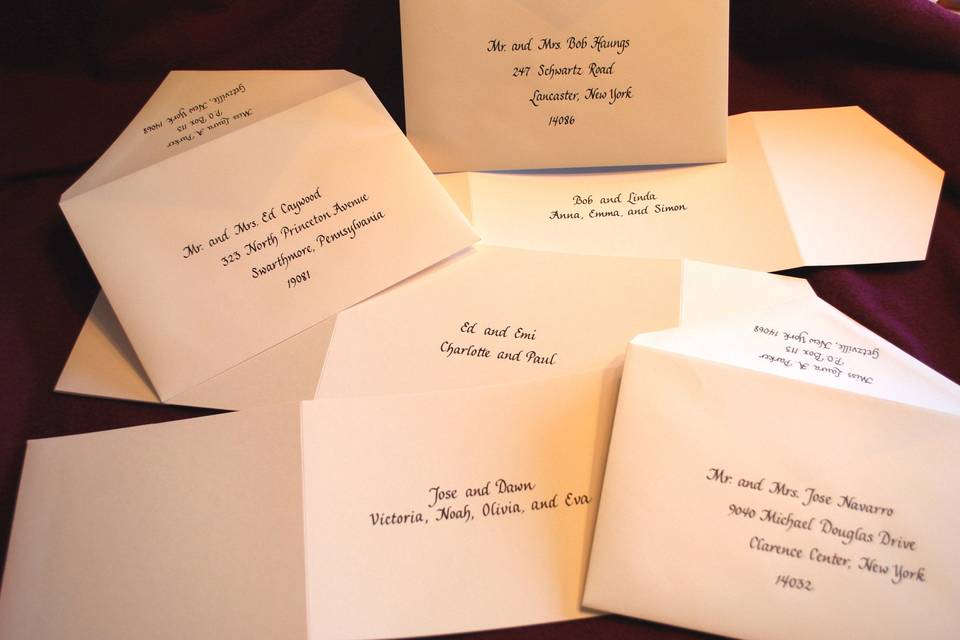 Mr. and Mrs. Bob Haungs
247 Schwartz Road
Lancaster, New York
14086
Miss Laura A. Parker
P.O. Box 115
Getzville, New York 14068
Mr. and Mrs. Ed Caywood
323 North Princeton Avenue
Swarthmore, Pennsylvania
19081
Bob and Linda
Anna, Emma, and Simon
Ed and Emi
Charlotte and Paul
Miss Laura A. Parker
P.O. Box 115
Getzville, New York 14068
Jose and Dawn
Victoria, Noah, Olivia, and Eva
Mr. and Mrs. Jose Navarro
9040 Michael Douglas Drive
Clarence Center, New York
14032